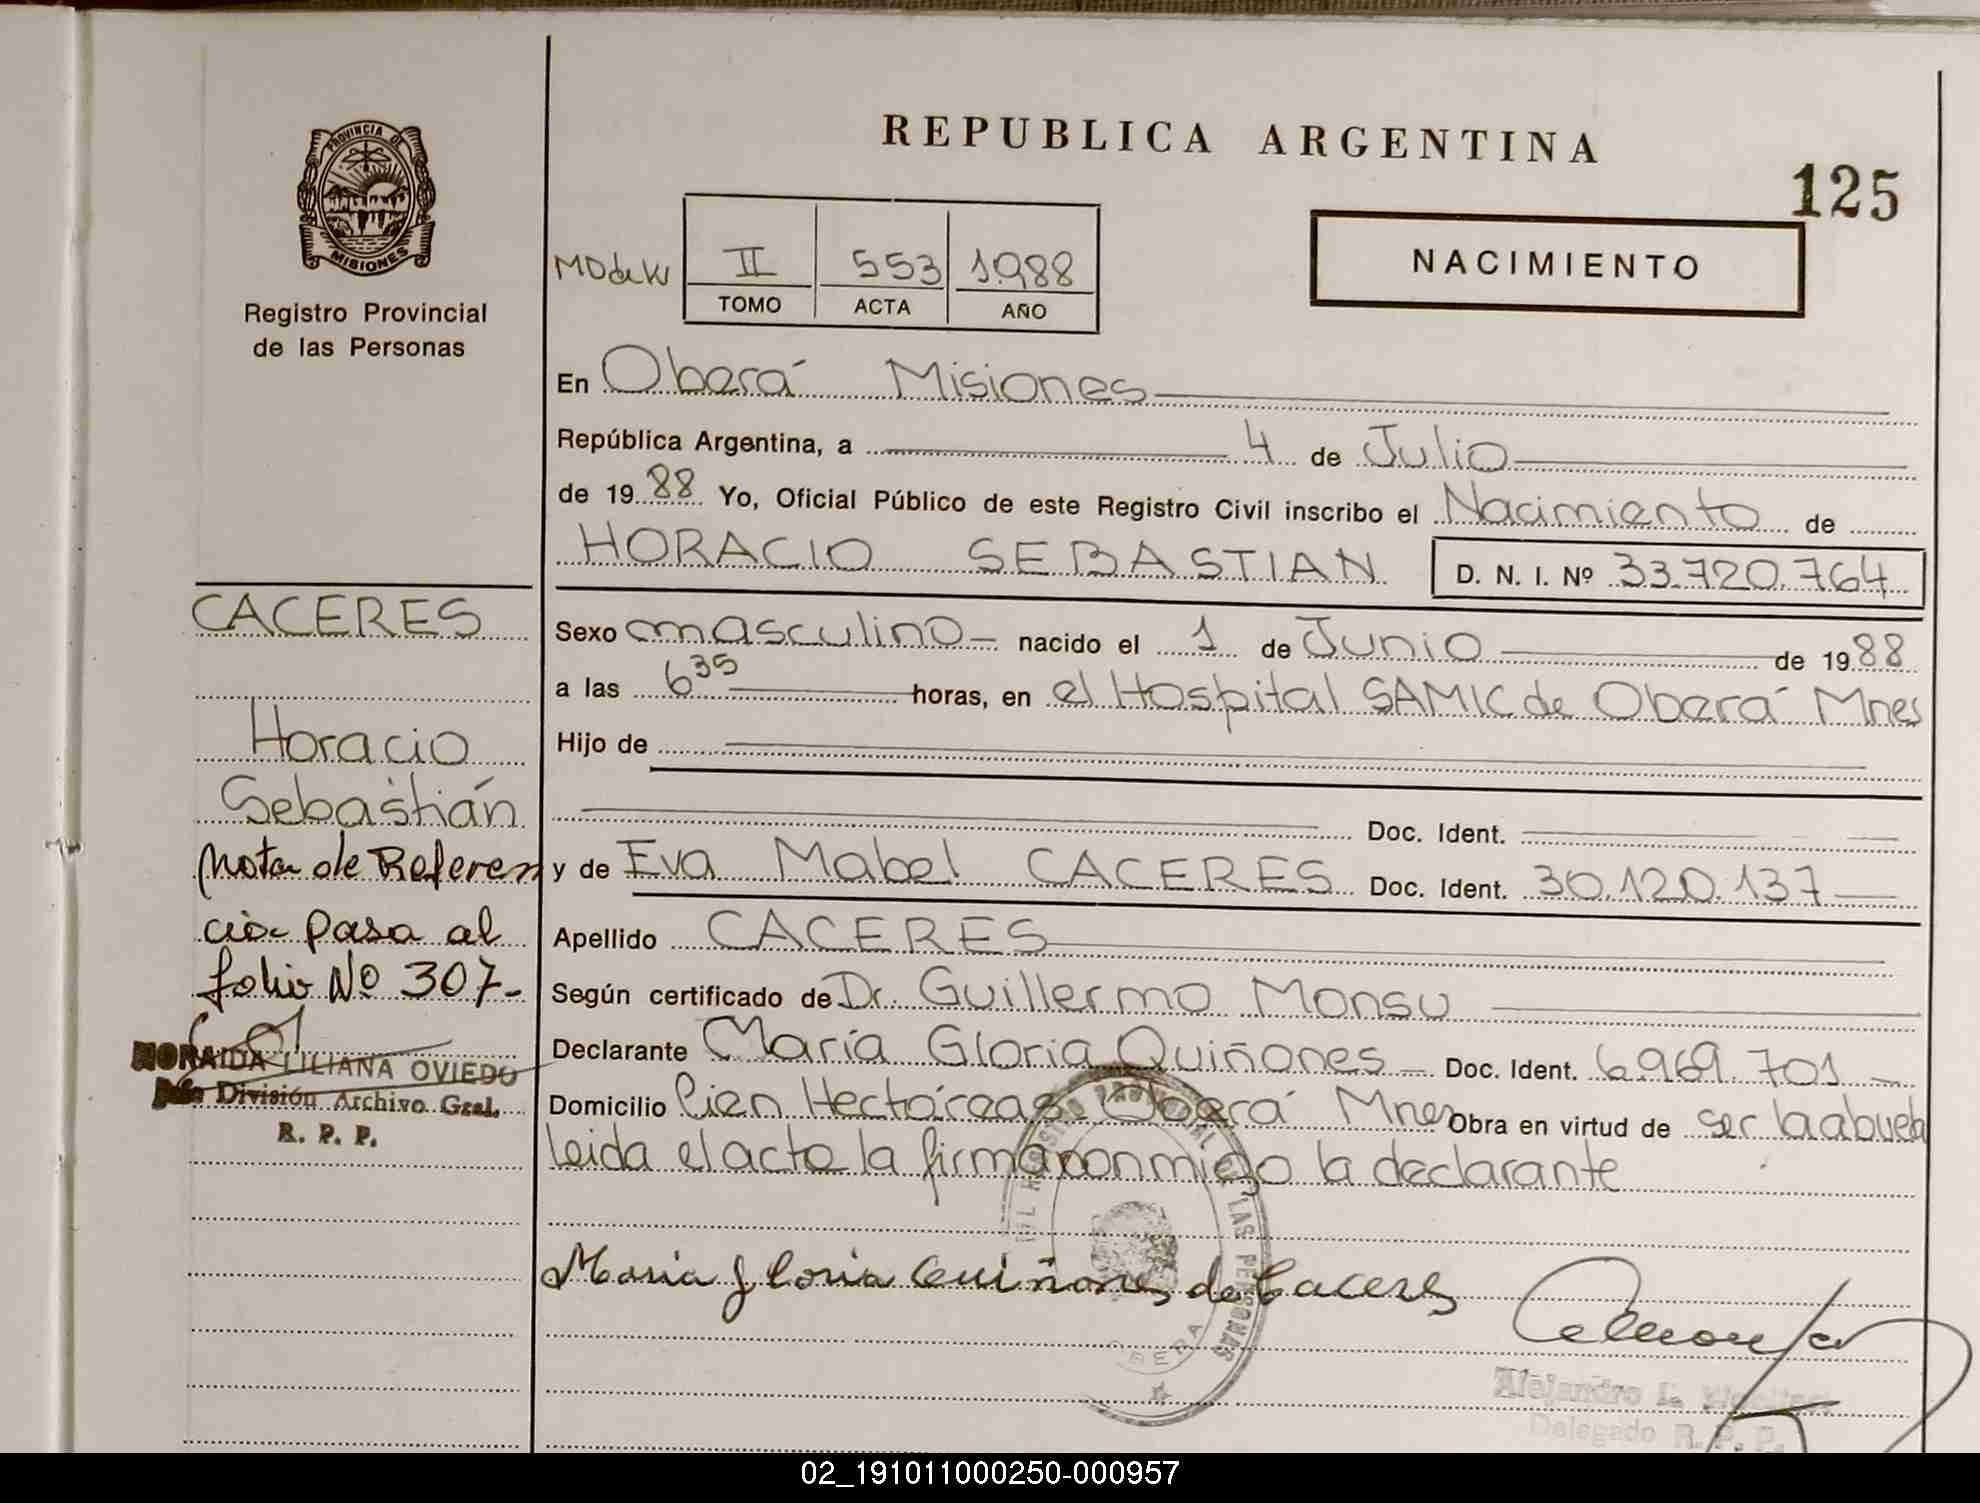 REPUBLICA ARGENTINA
125
NACIMIENTO
II 553 1.988
TOMO ACTA AÑO
PROVINCIA DE MISIONES
Registro Provincial
de las Personas
En Oberá Misiones
República Argentina, a 4 de Julio
de 1988 Yo, Oficial Público de este Registro Civil inscribo el Nacimiento de
HORACIO SEBASTIAN D. N. I. Nº 33.720.764
Sexo masculino nacido el 1 de Junio de 1988
a las 6 35 horas, en el Hospital SAMIC de Oberá Mnes
Hijo de
Doc. Ident.
y de Eva Mabel CACERES Doc. Ident. 30.120.137
Apellido CACERES
Según certificado de Dr. Guillermo Monsu
Declarante María Gloria Quiñones Doc. Ident. 6.969.701
Domicilio Cien Hectáreas Oberá Mnes Obra en virtud de ser la abuela
leida el acta la firma conmigo la declarante
Maria Gloria Quiñones de Caceres
CACERES
Horacio
Sebastián
Nota de Referen
cia pasa al
folio Nº 307-
NORAIDA LILIANA OVIEDO
Jefe División Archivo Gral.
R. P. P.
PROVINCIAL DE LAS PERSONAS
OBERA
Alejandro L.
Delegado R. P. P.
02_191011000250-000957